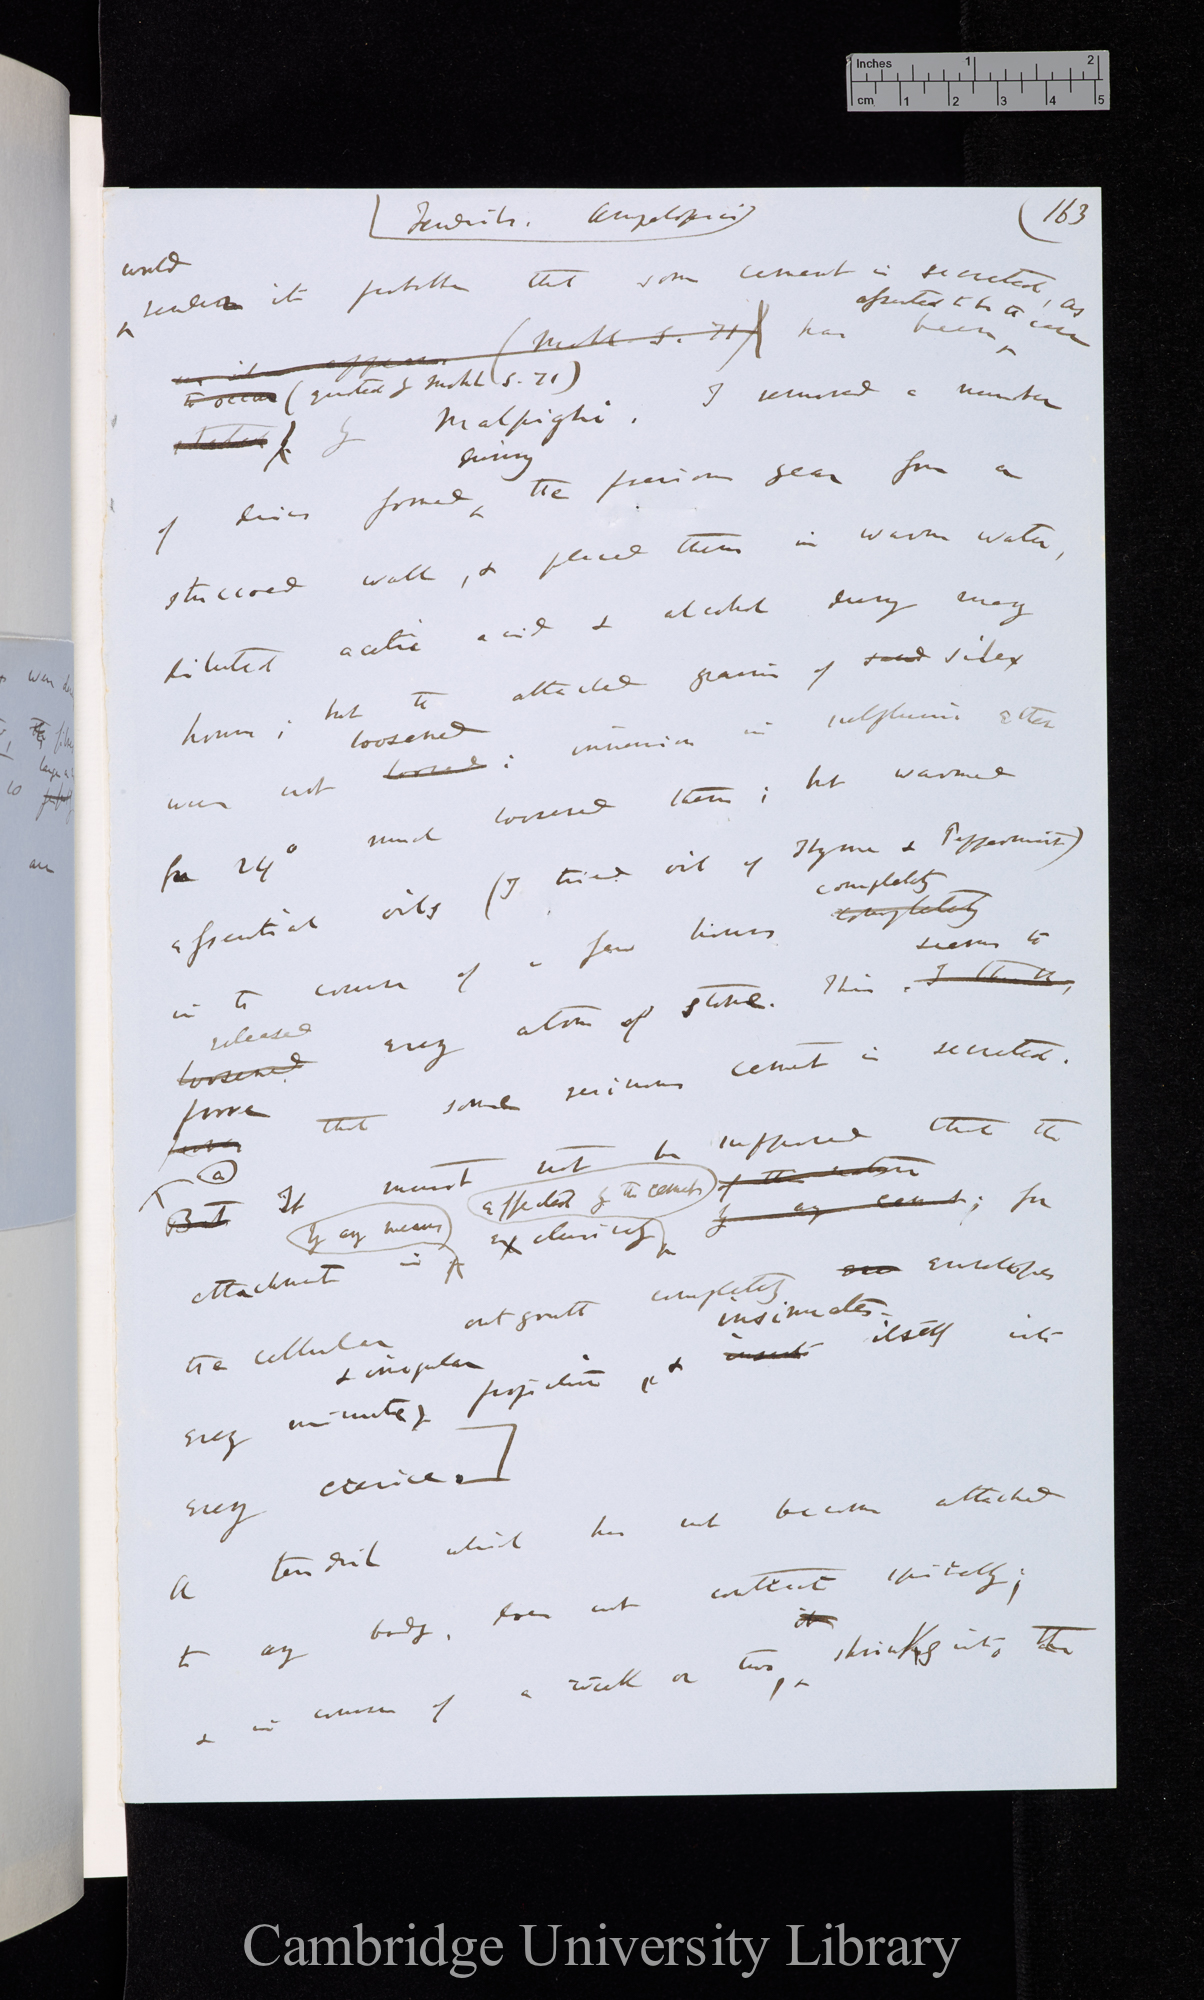 Inches 1 2
cm 1 2 3 4 5
Tendrils. Ampelopsis
(163
would
render it probable that some cement is secreted, as
asserted to be the case
as it appears (Mohl S. 71) has been
to occur (quoted by Mohl S. 71)
stated by Malpighi. I removed a number
during
of discs formed the previous year from a
stuccoed wall, & placed them in warm water,
diluted acetic acid & alcohol during many
hours; but the attached grains of sand silex
loosened
were not loosed; immersion in sulphuric ether
for 24° much loosened them; but warmed
essential oils (I tried oil of Thyme & Peppermint)
completely
in the course of a few hours completely
released seems to
loosened every atom of stone. This, I think,
prove
proves that some resinous cement is secreted.
(a)
But It must not be supposed that the
by any means effected by the cement of the
attachment is exclusively by any cement; for
the cellular outgrowth completely envelopes
& irregular insinuates
every minute projection, & inserts itself into
every crevice.
A tendril which has not become attached
to any body, does not contract spirally;
it
& in course of a week or two, shrinks into the
Cambridge University Library